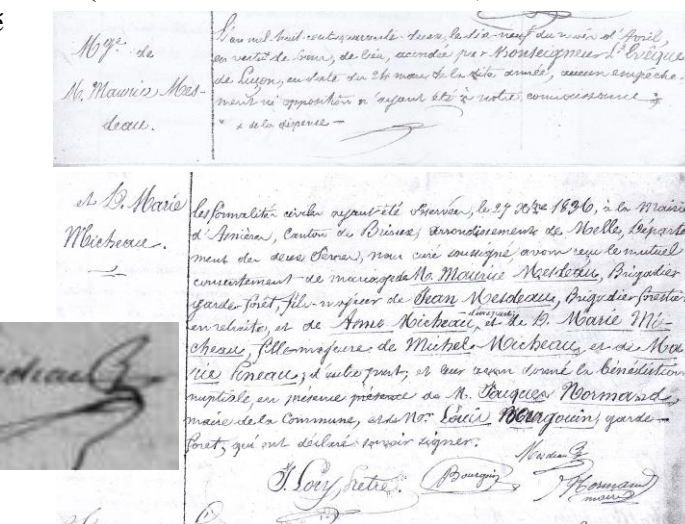 é
Mge. de
M. Maurice Mes-
deau.
L'an mil huit cent quarante-deux, le dix-neuf du mois d'Avril,
en vertu de bref, de , accordée par Monseigneur L'Evêque
de Luçon, en date du 24 mars de la dite année, aucun empêche-
ment ni opposition n'ayant été à notre connaissance
+ de la dispense —
et D. Marie
Micheau.
les formalités civiles ayant été observées, le 27 Xbre 1836, à la Mairie
d'Asnières, Canton de Brioux, arrondissement de Melle, Départe
ment des deux Sèvres, nous curé soussigné, avons reçu le mutuel
consentement de mariage de M. Maurice Mesdeau, Brigadier
garde-forêt, fils majeur de Jean Mesdeau, Brigadier forestier
en retraite, et de Anne Micheau, d'une part, et de D. Marie Mi-
cheau, fille majeure de Michel Micheau, et de Ma
rie Pineau, d'autre part; et leur avons donné la bénédiction
nuptiale, en présence présence de M. Jacques Normand,
maire de la Commune, et de Mr Louis Bourgouin, garde-
forêt, qui ont déclaré savoir signer.
Mesdeau
J. Loëy, Prêtre. Bourgoin Normand
maire